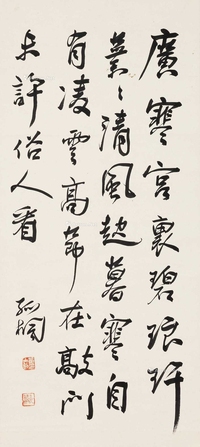 廣寒宮裏碧琅玕
葉〻清風起暮寒自
有凌雲高節在敲門
未許俗人看
孤桐